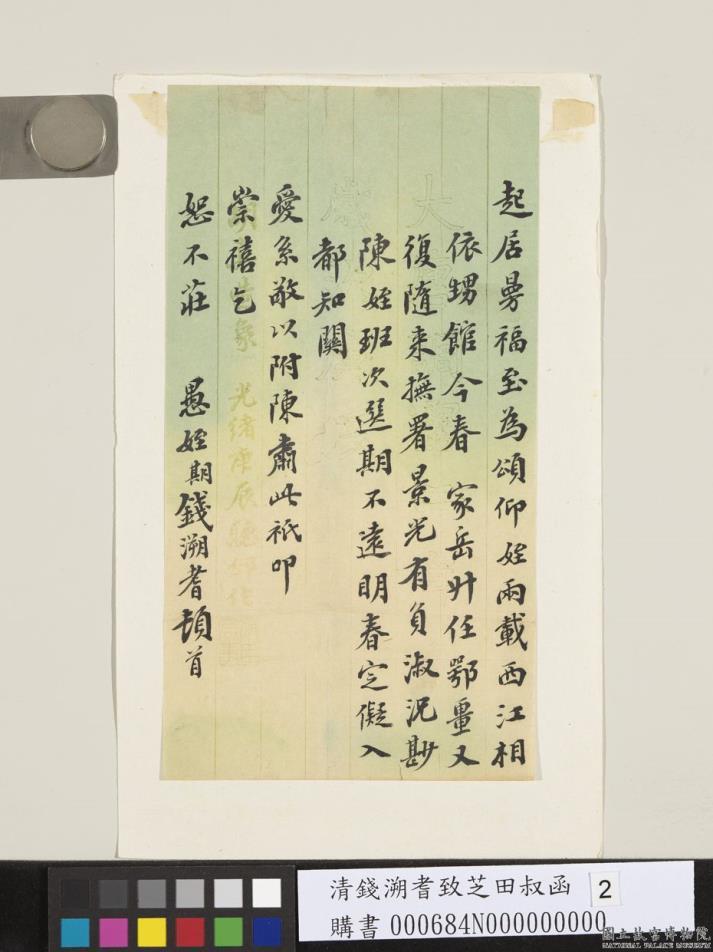 起居曼福至為頌仰姪兩載西江相
依甥館今春 家岳升任鄂畺又
復隨來撫署景光有負淑況尠
陳姪班次選期不遠明春定儗入
都知關
愛系敬以附陳肅此祗叩
崇禧乞
恕不莊 愚姪期錢溯耆頓首
大
歲
光緒庚辰
清錢溯耆致芝田叔函
2
購書 000684N000000000
國立故宮博物院
NATIONAL PALACE MUSEUM